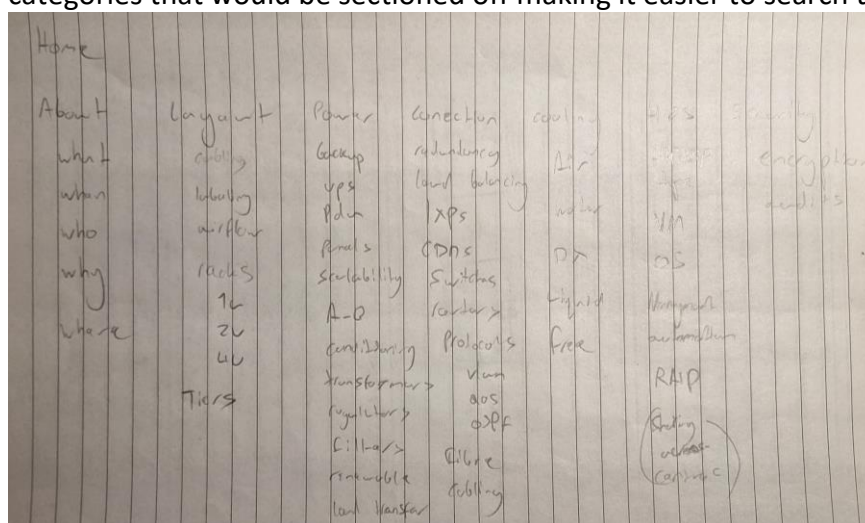 categories that would be sectioned off making it easier to search
Home
About
what
when
who
why
where
Layout
cabling
labeling
airflow
racks
1U
2U
4U
Tiers
Power
backup
ups
Pdu
Panels
scalability
A-0
conditioning
transformers
regulators
filters
renewable
load transfer
conection
redundancy
load balancing
IXPs
CDNs
Switches
routers
Protocols
vlan
qos
OSPF
fibre
cabling
cooling
Air
water
DX
Liquid
free
VM
OS
automation
RAID
encryption
audits